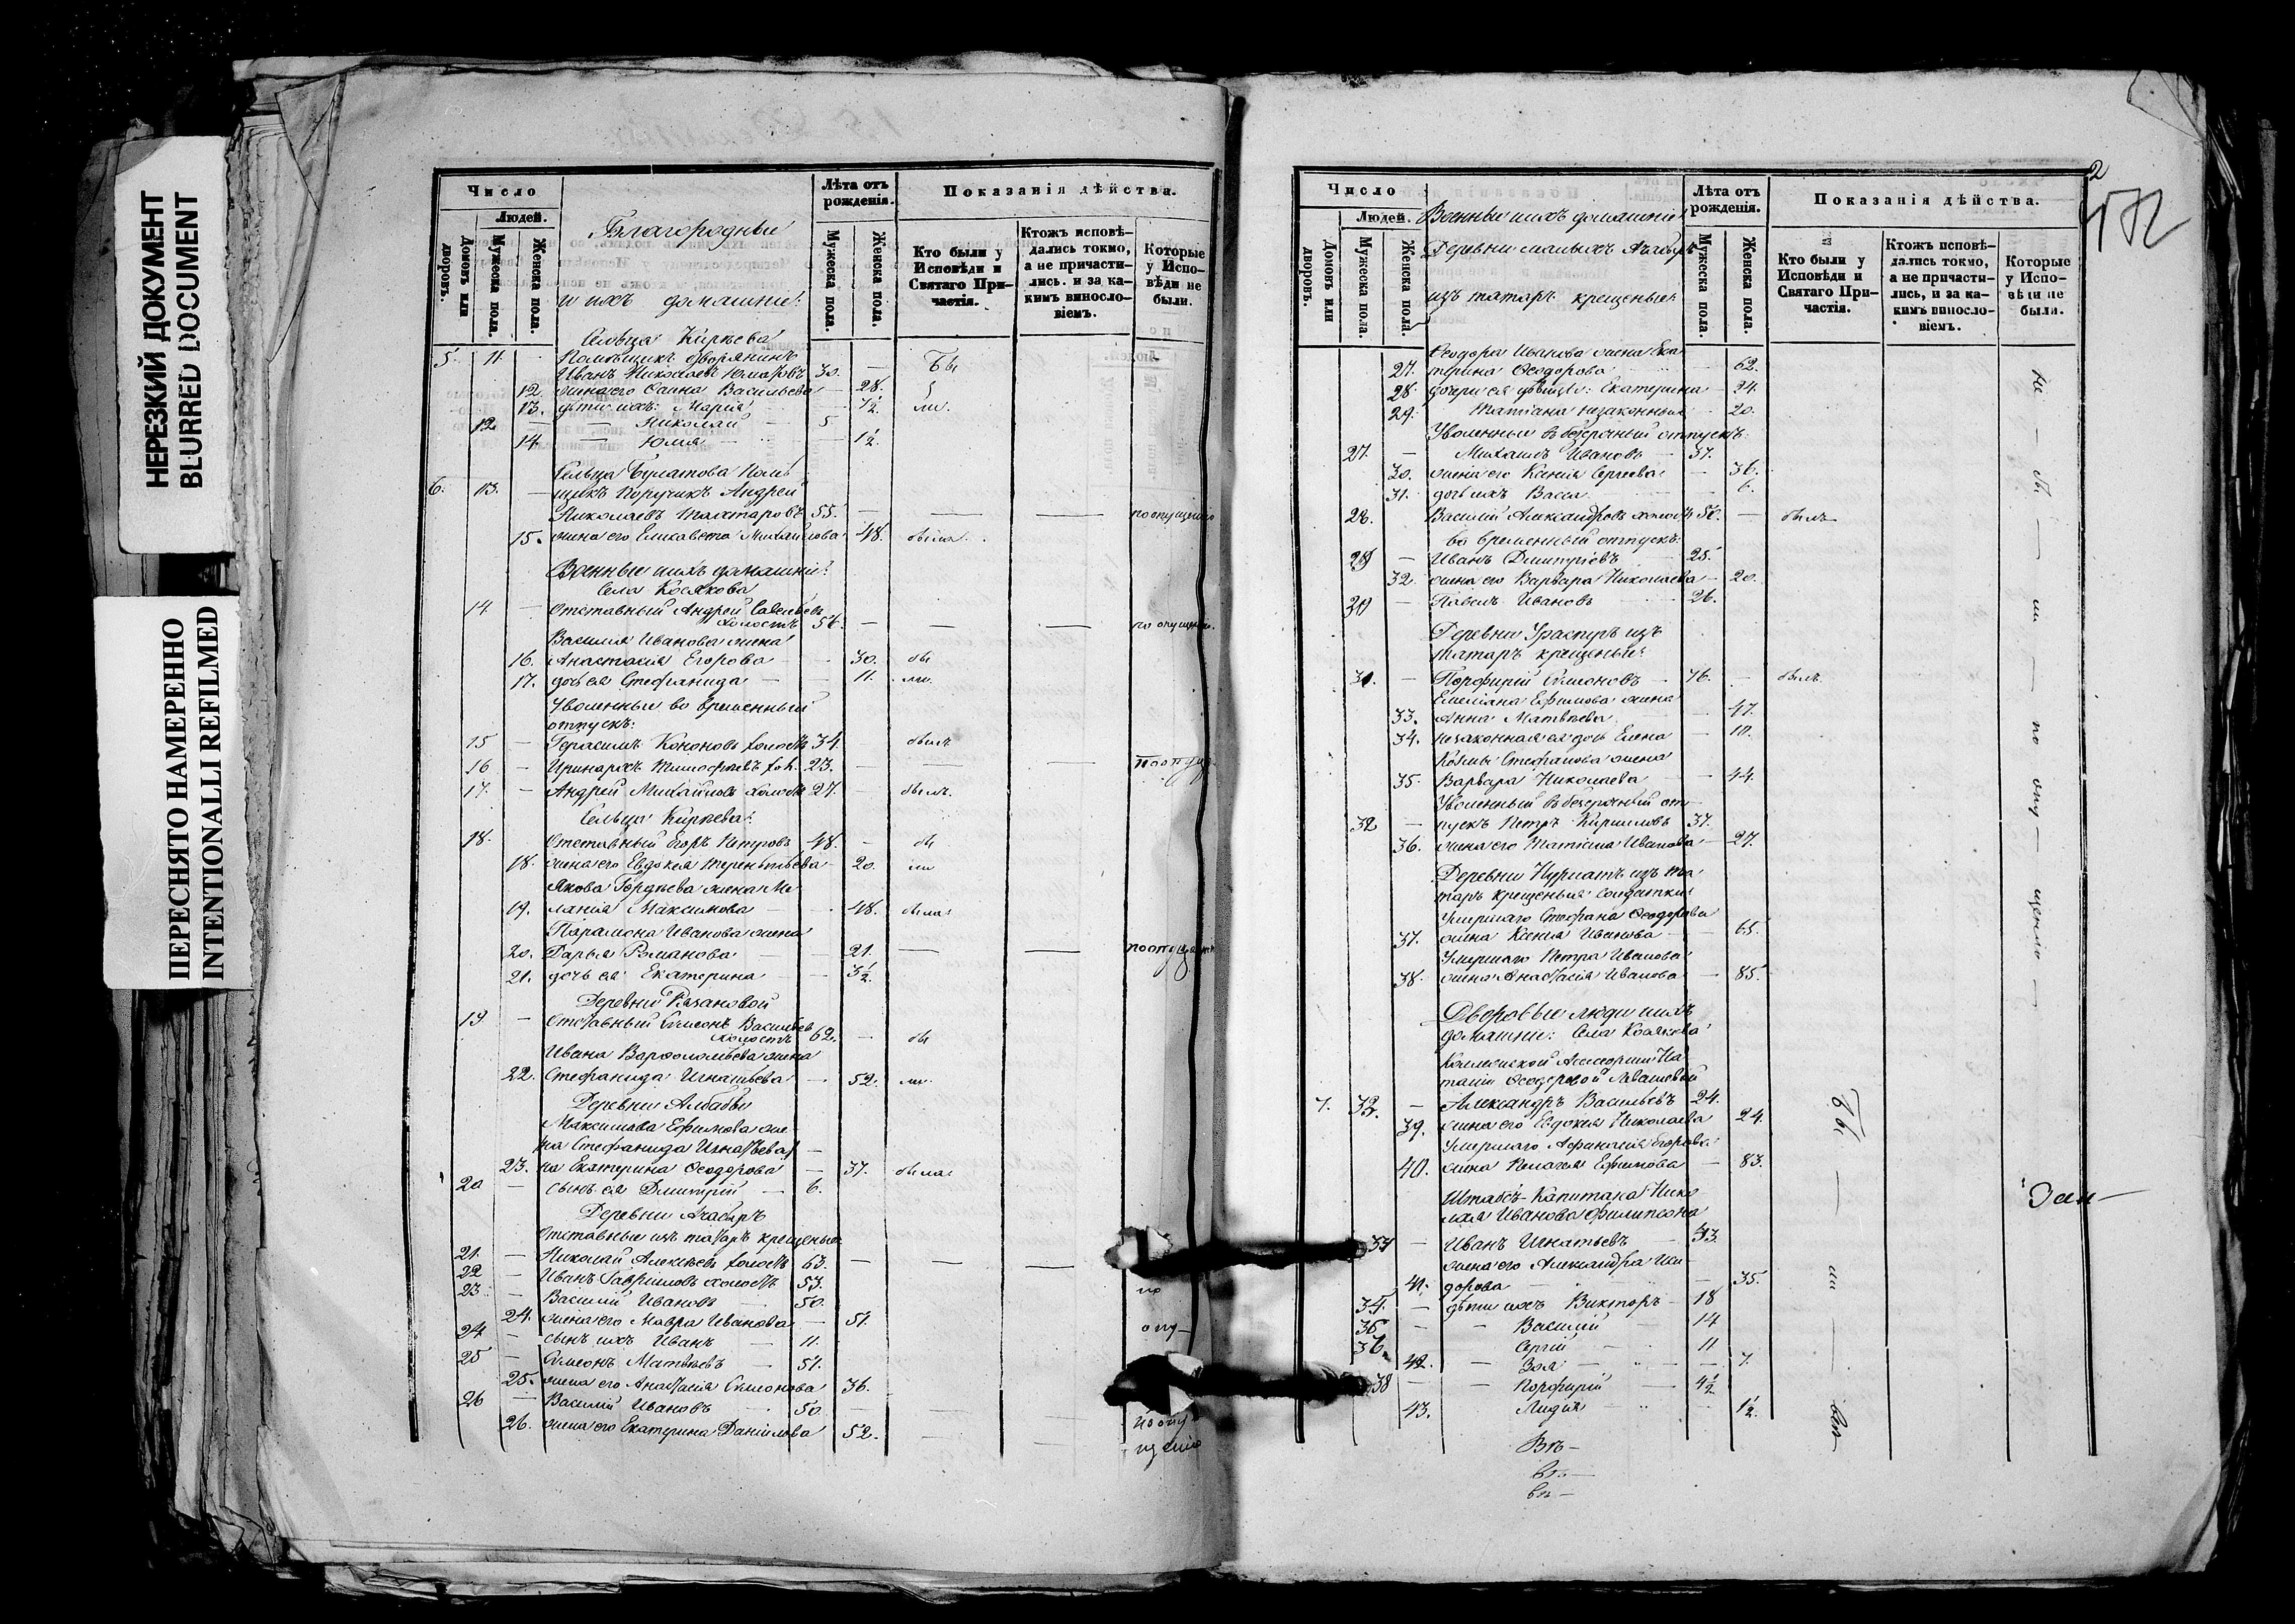 НЕРЕЗКИЙ ДОКУМЕНТ
BLURRED DOCUMENT
ПЕРЕСНЯТО НАМЕРЕННО
INTENTIONALLI REFILMED
Число
Людей.
Домовъ или дворовъ.
Мужеска пола.
Женска пола.
Благородные
и ихъ домашніе:
Лѣта отъ рожденія.
Мужеска пола.
Женска пола.
Показанія дѣйства.
Кто были у Исповѣди и Святаго При-
частія.
Ктожъ исповѣ-
дались токмо,
а не причасти-
лись. и за ка-
кимъ виносло-
віемъ.
Которые
у Испо-
вѣди не
были.
Сельца Киркева
5. 11. Помѣщикъ дворянинъ
Иванъ Николаевъ 30. — Бы
12. жена его Васильева — 28.
13. дѣти ихъ: Марія — 1/2 ли.
12 — Николай — 5
14. — Юлія — 1 1/2.
Сельца Булатова Помѣ
6. 13. — щикъ Поручикъ Андрей
Николаевъ 55. — — — по опущенію
15. жена его Елисавета Михайлова 48. была.
Военные и ихъ домашніе:
Села Косякова
14. — Отставный Андрей Савельевъ
холостъ 56. — — — по опущен.
Василія Иванова жена
16. Анастасія Егорова — 30. бы
17. дочь ея Стефанида — 11. ли.
Уволенные во временный
отпускъ:
15 — Герасимъ Кононовъ холостъ 34. былъ
16 — Иринархъ Тимофѣевъ хол. 23. — — —
17. — Андрей Михайловъ холостъ 27. — былъ.
Сельца Киркева:
18. Отставный Егоръ Петровъ 48. — бы
18. жена его Евдокія Терентьева 20. ли
Якова Гордѣева жена Ме
19. ланія Максимова — 48. была
Парамона Иванова жена
20. Дарья Романова — 21. — — по опущен
21. дочь ея Екатерина — 3 1/2.
Деревни Казановой
19 — Отставный Симеонъ Васильев
холостъ 62. — бы
Ивана Варфоломѣева жена
22. Стефанида Игнатьева — 52. ли.
Деревни
Максима Ефимова же
на Стефанида Игнатьева
23. на Екатерина Ѳеодорова — 37. была
20 — сынъ ея Дмитрій — 6.
Деревни Ачабыръ
Отставные изъ татаръ крещеные
21. — Николай Алексѣевъ холостъ 63. — — —
22 — Иванъ Гавриловъ холостъ 53.
23 — Василій Ивановъ — 50. по
24. жена его Мавра Иванова — 51.
24 — сынъ ихъ Иванъ — 11. опу—
25 — Симеонъ Матвѣевъ — 51.
25. жена его Анастасія Симонова 36.
26 — Василій Ивановъ 50. — — —
26. жена его Екатерина Даніилова 52. — — по опу
щенію
2
Число
Людей.
Домовъ или дворовъ.
Мужеска пола.
Женска пола.
Военные и ихъ домашніе
Деревни малыхъ Ачабыръ
изъ татаръ крещеные:
Лѣта отъ рожденія.
Мужеска пола.
Женска пола.
Показанія дѣйства.
Кто были у
Исповѣди и
Святаго При-
частія.
Ктожъ исповѣ-
дались токмо,
а не причасти-
лись, и за ка-
кимъ виносло-
віемъ.
Которые
у Испо-
вѣди не
были.
Ѳеодора Иванова жена Ека
27. терина Ѳеодорова — 62.
28. дочери ея дѣвицы: Екатерина — 24.
29. Татіана незаконныя 20.
Уволенные въ безсрочный отпускъ:
27. — Михаилъ Ивановъ — 37.
30. жена его Ксенія Сергѣева — 36.
31. дочь ихъ Васса. — 6.
28. Василій Александровъ холостъ 50. — былъ
во временный отпускъ:
29 — Иванъ Дмитріевъ 25.
32. жена его Варвара Николаева — 20.
30 — Павелъ Ивановъ 26.
Деревни изъ
татаръ крещеные:
31. — Порфирій Симоновъ 76. — былъ.
Емеліана Ефимова жена
33. Анна Матвѣева 47.
34. незаконная ея дочь Елена — 10.
Козмы Стефанова жена
35. Варвара Николаева — 44.
Уволенный въ безсрочный от-
32 — пускъ Петръ Кирилловъ 37.
36. жена его Татіана Иванова — 27.
Деревни Нурматъ изъ та
таръ крещеныя солдатки:
Умершаго Стефана Ѳеодорова
37. жена Ксенія Иванова — 65.
Умершаго Петра Иванова
38. жена Анастасія Иванова — 85.
не — бы — ли — по опу — щенію —
Дворовые люди и ихъ
домашніе: Села Косякова
Коллежской Ассесорши На
таліи Ѳеодоровой
7. 33. — Александръ Васильевъ 24.
39. жена его Евдокія Николаева 24.
Умершаго Аѳанасія Егорова
40. жена Пелагея Ефимова — 83.
Штабсъ-Капитана Нико
лая Иванова Филипсона
34 — Иванъ Игнатьевъ — 43.
жена его Александра Иси-
41. дорова — 35.
35. — дѣти ихъ Викторъ — 18
36 — Василій — 14
Сергій — 11
42. — Зоя — — 7.
38 — Порфирій — 4 1/2
43. Лидія — 1 1/2.
Бы — ли — всѣ
Въ—
въ—
въ—